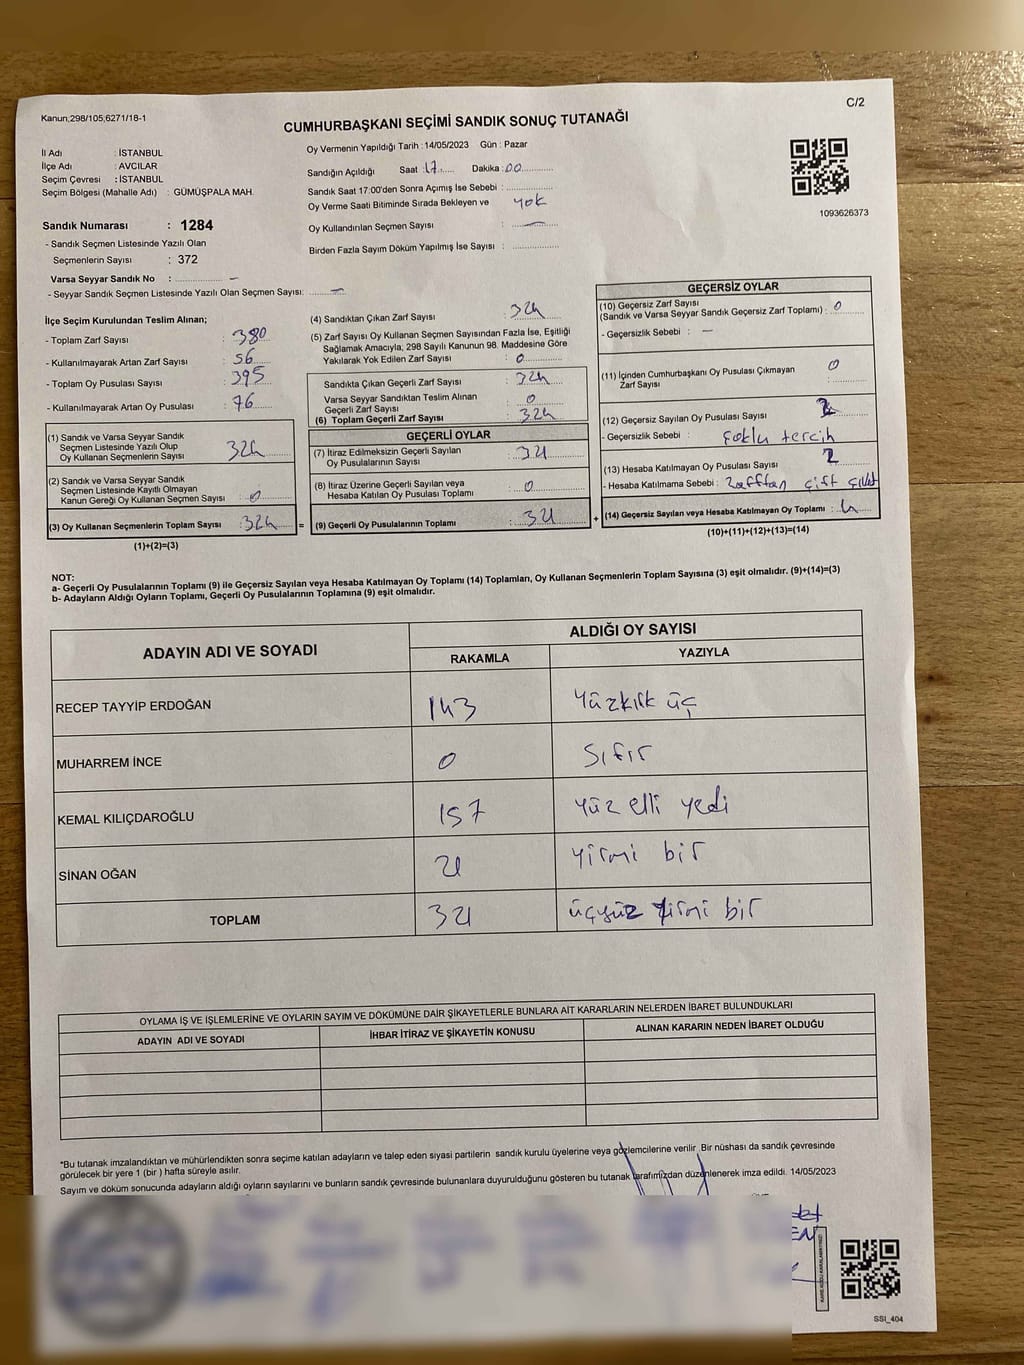 Kanun,298/105,6271/18-1
C/2
CUMHURBAŞKANI SEÇİMİ SANDIK SONUÇ TUTANAĞI
İl Adı : İSTANBUL
İlçe Adı : AVCILAR
Seçim Çevresi : İSTANBUL
Seçim Bölgesi (Mahalle Adı) : GÜMÜŞPALA MAH.
Sandık Numarası : 1284
- Sandık Seçmen Listesinde Yazılı Olan
Seçmenlerin Sayısı : 372
Varsa Seyyar Sandık No : –
- Seyyar Sandık Seçmen Listesinde Yazılı Olan Seçmen Sayısı: –
Oy Vermenin Yapıldığı Tarih : 14/05/2023 Gün : Pazar
Sandığın Açıldığı Saat : 17 Dakika : 00
Sandık Saat 17:00'den Sonra Açımış İse Sebebi :
Oy Verme Saati Bitiminde Sırada Bekleyen ve yok
Oy Kullandırılan Seçmen Sayısı : –
Birden Fazla Sayım Döküm Yapılmış İse Sayısı :
1093626373
İlçe Seçim Kurulundan Teslim Alınan;
- Toplam Zarf Sayısı : 380
- Kullanılmayarak Artan Zarf Sayısı : 56
- Toplam Oy Pusulası Sayısı : 395
- Kullanılmayarak Artan Oy Pusulası : 76
(1) Sandık ve Varsa Seyyar Sandık
Seçmen Listesinde Yazılı Olup
Oy Kullanan Seçmenlerin Sayısı : 324
(2) Sandık ve Varsa Seyyar Sandık
Seçmen Listesinde Kayıtlı Olmayan
Kanun Gereği Oy Kullanan Seçmen Sayısı : 0
(3) Oy Kullanan Seçmenlerin Toplam Sayısı : 324 =
(1)+(2)=(3)
(4) Sandıktan Çıkan Zarf Sayısı : 324
(5) Zarf Sayısı Oy Kullanan Seçmen Sayısından Fazla İse, Eşitliği
Sağlamak Amacıyla; 298 Sayılı Kanunun 98. Maddesine Göre
Yakılarak Yok Edilen Zarf Sayısı : 0
Sandıkta Çıkan Geçerli Zarf Sayısı : 324
Varsa Seyyar Sandıktan Teslim Alınan
Geçerli Zarf Sayısı : 0
(6) Toplam Geçerli Zarf Sayısı : 324
GEÇERLİ OYLAR
(7) İtiraz Edilmeksizin Geçerli Sayılan
Oy Pusulalarının Sayısı : 321
(8) İtiraz Üzerine Geçerli Sayılan veya
Hesaba Katılan Oy Pusulası Toplamı : 0
(9) Geçerli Oy Pusulalarının Toplamı : 321 +
GEÇERSİZ OYLAR
(10) Geçersiz Zarf Sayısı
(Sandık ve Varsa Seyyar Sandık Geçersiz Zarf Toplamı) : 0
- Geçersizlik Sebebi : –
(11) İçinden Cumhurbaşkanı Oy Pusulası Çıkmayan
Zarf Sayısı : 0
(12) Geçersiz Sayılan Oy Pusulası Sayısı : 2
- Geçersizlik Sebebi : çoklu tercih
(13) Hesaba Katılmayan Oy Pusulası Sayısı : 2
- Hesaba Katılmama Sebebi : zafftan çift çıktı
(14) Geçersiz Sayılan veya Hesaba Katılmayan Oy Toplamı : 4
(10)+(11)+(12)+(13)=(14)
NOT:
a- Geçerli Oy Pusulalarının Toplamı (9) ile Geçersiz Sayılan veya Hesaba Katılmayan Oy Toplamı (14) Toplamları, Oy Kullanan Seçmenlerin Toplam Sayısına (3) eşit olmalıdır. (9)+(14)=(3)
b- Adayların Aldığı Oyların Toplamı, Geçerli Oy Pusulalarının Toplamına (9) eşit olmalıdır.
ADAYIN ADI VE SOYADI
ALDIĞI OY SAYISI
RAKAMLA YAZIYLA
RECEP TAYYİP ERDOĞAN 143 Yüzkırk üç
MUHARREM İNCE 0 Sıfır
KEMAL KILIÇDAROĞLU 157 yüz elli yedi
SİNAN OĞAN 21 yirmi bir
TOPLAM 321 üçyüz yirmi bir
OYLAMA İŞ VE İŞLEMLERİNE VE OYLARIN SAYIM VE DÖKÜMÜNE DAİR ŞİKAYETLERLE BUNLARA AİT KARARLARIN NELERDEN İBARET BULUNDUKLARI
ADAYIN ADI VE SOYADI İHBAR İTİRAZ VE ŞİKAYETİN KONUSU ALINAN KARARIN NEDEN İBARET OLDUĞU
*Bu tutanak imzalandıktan ve mühürlendikten sonra seçime katılan adayların ve talep eden siyasi partilerin sandık kurulu üyelerine veya gözlemcilerine verilir. Bir nüshası da sandık çevresinde
görülecek bir yere 1 (bir ) hafta süreyle asılır.
Sayım ve döküm sonucunda adayların aldığı oyların sayılarını ve bunların sandık çevresinde bulunanlara duyurulduğunu gösteren bu tutanak tarafımızdan düzenlenerek imza edildi. 14/05/2023
SSI_404